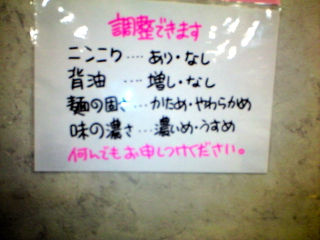 調整できます
ニンニク‥‥あり・なし
背油‥‥増し・なし
麺の固さ‥‥かため・やわらかめ
味の濃さ‥‥濃いめ・うすめ
何んでもお申しつけください。